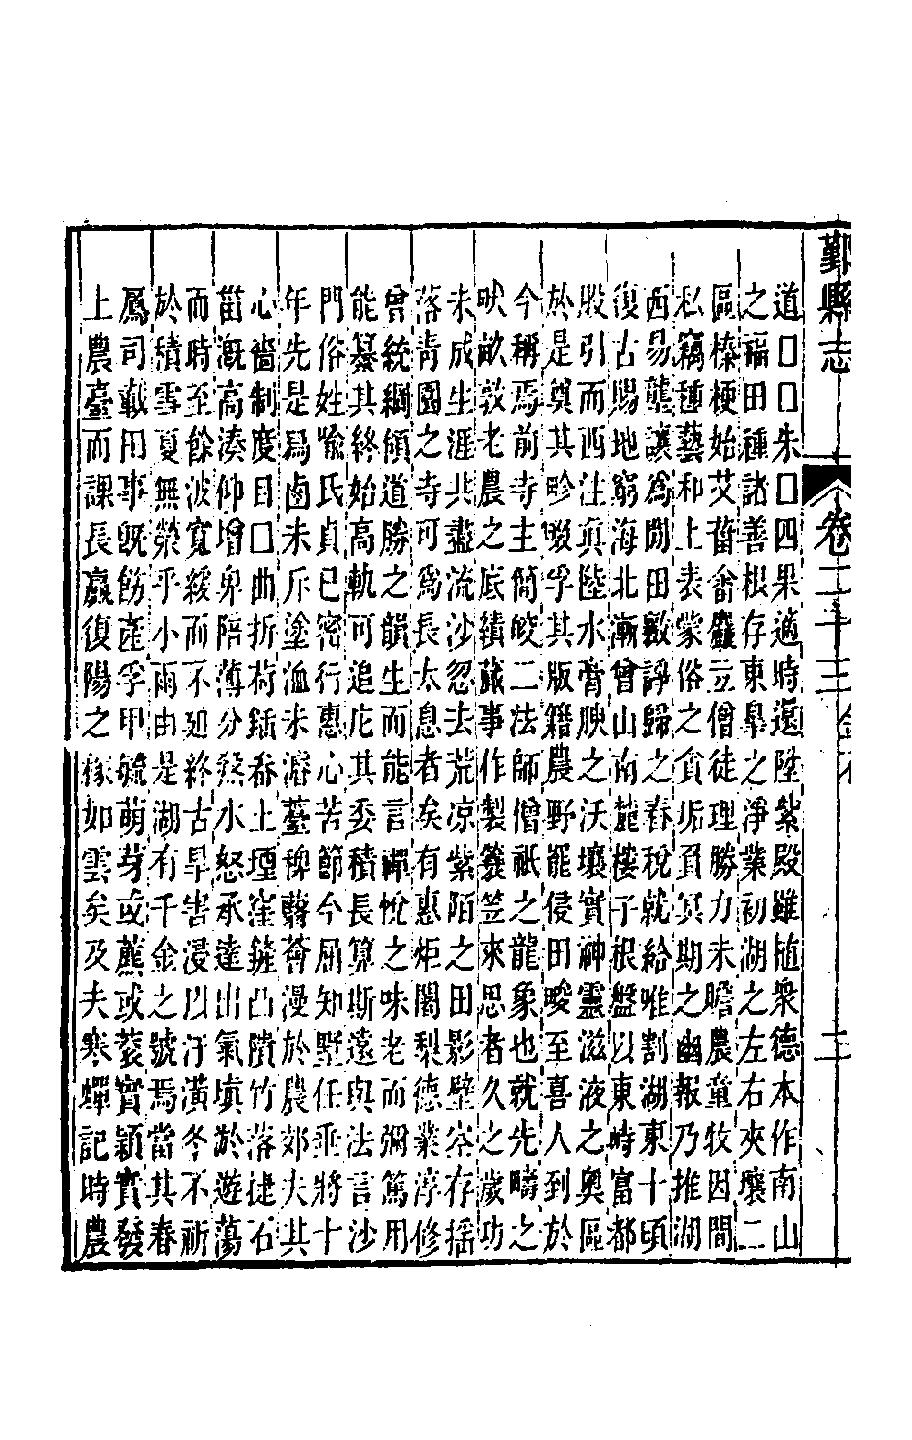 鄞縣志
卷二十三
二
道囗囗朱囗四果適時還陞紫殿雖隨衆德本作南山
之福田種諸善根存東皐之淨業初湖之左右夾壤二
區榛梗始艾菑畬麗立僧徒理勝力未贍農童牧因間
私竊種藝和上表蒙俗之貪垢負冥期之幽報乃推湖
西易壟讓爲閒田斆諍歸之春稅就給唯割湖東十頃
復古賜地窮海北漸曾山南麓樓子根盤以東峙富都
股引而西注眞陸水膏腴之沃壤實神靈滋液之奧區
於是奠其畛畷孚其版籍農野罷侵田畯至喜人到於
今稱焉前寺主簡皎二法師僧祇之龍象也就先疇之
畎畝敦老農之底績蕆事作製簑笠來思者久之歲功
未成生涯北盡流沙忽去荒凉紫陌之田影壁峇存揺
落靑園之寺可爲長太息者矣有惠炬闍梨德業淳修
曾統綱領道勝之韻生而能言禪悅之味老而彌篤用
能纂其終始高軌可追庀其委積長算斯遠與法言沙
門俗姓喩氏貞已密行惠心苦節今屈知墅任垂將十
年先是爲鹵未斥塗洫未濬薹稗翳薈漫於農郊夫其
心畵制度目囗曲折荷鍤畚土堙窪籦凸隤竹落揵石
菑漑高湊仰增卑陪薄分煞水怒承遠出氣塡淤遊蕩
而時至餘波寬緩而不廻終古旱害浸以汙潢冬不祈
於積雪夏無禜乎小雨由是湖有千金之號焉當其春
鳸司載田事旣飭產孚甲毓萌芽或藨或蓘實穎實發
上農臺而課長嬴復陽之稼如雲矣及夫寒蟬記時農